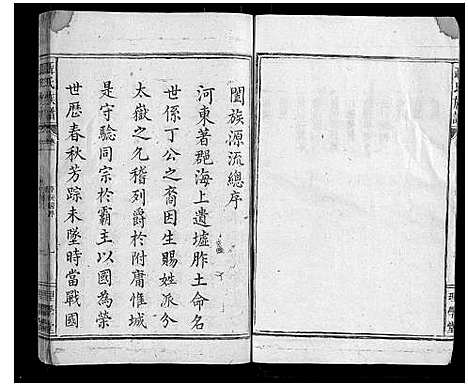 闔族源流總序
河東著郡海上遺墟胙土命名
世係丁公之裔因生賜姓派分
太嶽之允稽列爵於附庸惟城
是守驗同宗於霸主以國為榮
世歷春秋芳踪未墜時當戰國
理學堂